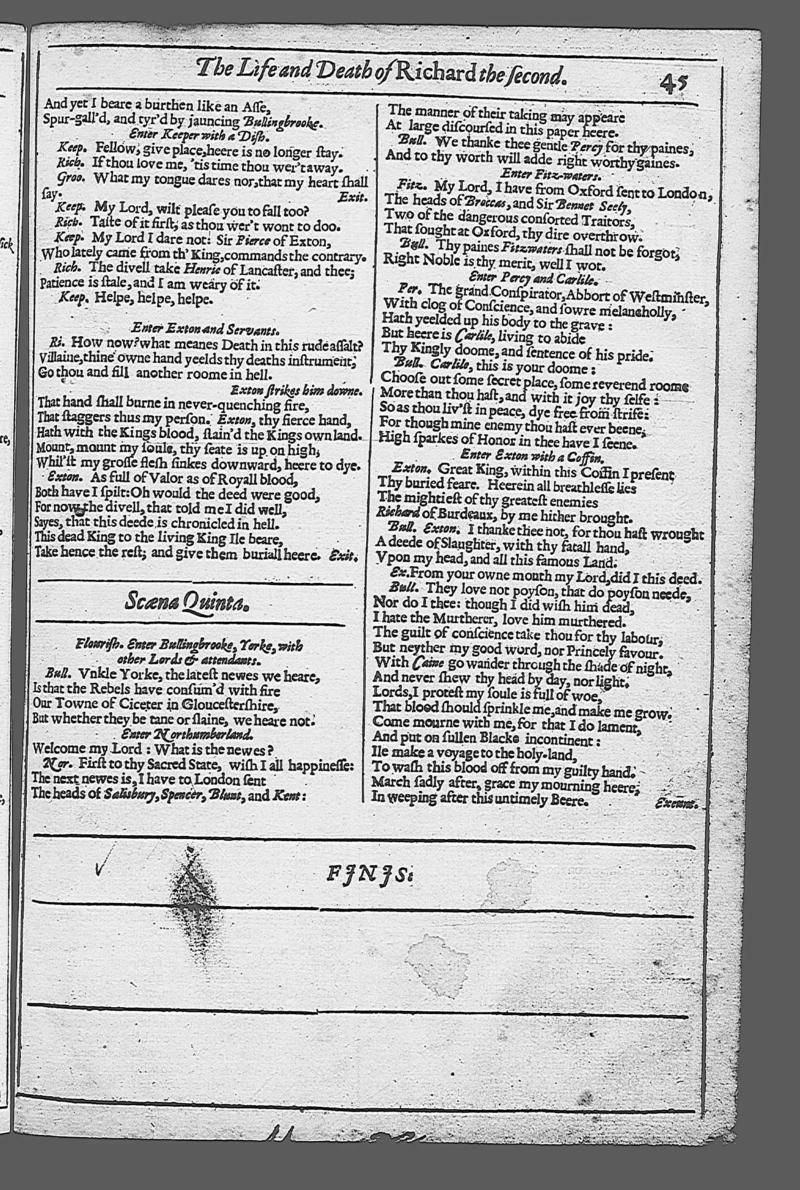 The Life and Death of Richard the ſecond. 45
And yet I beare a burthen like an Aſſe,
Spur-gall'd, and tyr'd by jauncing Bullingbrooke.
Enter Keeper with a Diſh.
Keep. Fellow, give place, heere is no longer ſtay.
Rich. If thou love me, 'tis time thou wer't away.
Groo. What my tongue dares nor, that my heart ſhall
ſay. Exit.
Keep. My Lord, wilt pleaſe you to fall too?
Rich. Taſte of it firſt, as thou wer't wont to doo.
Keep. My Lord I dare not: Sir Pierce of Exton,
Who lately came from th' King, commands the contrary.
Rich. The divell take Henrie of Lancaſter, and thee;
Patience is ſtale, and I am weary of it.
Keep. Helpe, helpe, helpe.
Enter Exton and Servants.
Ri. How now? what meanes Death in this rude aſſalt?
Villaine, thine owne hand yeelds thy deaths inſtrument;
Go thou and fill another roome in hell.
Exton ſtrikes him downe.
That hand ſhall burne in never-quenching fire,
That ſtaggers thus my perſon. Exton, thy fierce hand,
Hath with the Kings blood, ſtain'd the Kings own land.
Mount, mount my ſoule, thy ſeate is up on high;
Whil'ſt my groſſe fleſh ſinkes downward, heere to dye.
Exton. As full of Valor as of Royall blood,
Both have I ſpilt: Oh would the deed were good,
For now the divell, that told me I did well,
Sayes, that this deede is chronicled in hell.
This dead King to the living King Ile beare,
Take hence the reſt; and give them buriall heere. Exit.
Scæna Quinta.
Flouriſh. Enter Bullingbrooke, Yorke, with
other Lords & attendants.
Bull. Vnkle Yorke, the lateſt newes we heare,
Is that the Rebels have conſum'd with fire
Our Towne of Ciceter in Glouceſterſhire,
But whether they be tane or ſlaine, we heare not.
Enter Northumberland.
Welcome my Lord: What is the newes?
Nor. Firſt to thy Sacred State, wiſh I all happineſſe:
The next newes is, I have to London ſent
The heads of Salisbury, Spencer, Blunt, and Kent:
The manner of their taking may appeare
At large diſcourſed in this paper heere.
Bull. We thanke thee gentle Percy for thy paines,
And to thy worth will adde right worthy gaines.
Enter Fitz-waters.
Fitz. My Lord, I have from Oxford ſent to London,
The heads of Broccas, and Sir Bennet Seely,
Two of the dangerous conſorted Traitors,
That ſought at Oxford, thy dire overthrow.
Bull. Thy paines Fitzwaters ſhall not be forgot,
Right Noble is thy merit, well I wot.
Enter Percy and Carlile.
Per. The grand Conſpirator, Abbort of Weſtminſter,
With clog of Conſcience, and ſowre melancholly,
Hath yeelded up his body to the grave:
But heere is Carlile, living to abide
Thy Kingly doome, and ſentence of his pride.
Bull. Carlile, this is your doome:
Chooſe out ſome ſecret place, ſome reverend roome
More than thou haſt, and with it joy thy ſelfe:
So as thou liv'ſt in peace, dye free from ſtrife:
For though mine enemy thou haſt ever beene,
High ſparkes of Honor in thee have I ſeene.
Enter Exton with a Coffin.
Exton. Great King, within this Coffin I preſent
Thy buried feare. Heerein all breathleſſe lies
The mightieſt of thy greateſt enemies
Richard of Burdeaux, by me hither brought.
Bull. Exton. I thanke thee not, for thou haſt wrought
A deede of Slaughter, with thy fatall hand,
Vpon my head, and all this famous Land.
Ex. From your owne mouth my Lord, did I this deed.
Bull. They love not poyſon, that do poyſon neede,
Nor do I thee: though I did wiſh him dead,
I hate the Murtherer, love him murthered.
The guilt of conſcience take thou for thy labour,
But neyther my good word, nor Princely favour.
With Caine go wander through the ſhade of night,
And never ſhew thy head by day, nor light.
Lords, I proteſt my ſoule is full of woe,
That blood ſhould ſprinkle me, and make me grow.
Come mourne with me, for that I do lament,
And put on ſullen Blacke incontinent:
Ile make a voyage to the holy-land,
To waſh this blood off from my guilty hand.
March ſadly after, grace my mourning heere,
In weeping after this untimely Beere. Exeunt.
FINIS.